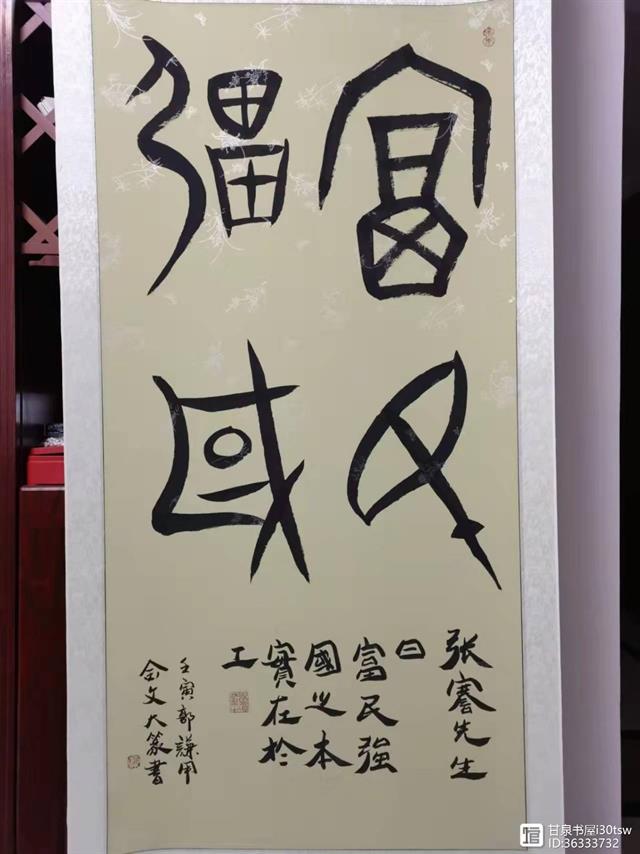 富民
彊國
张謇先生
曰
富民强
國之本
實在於
工
壬寅郭謙用
金文大篆書
甘泉书屋i30tsw
ID:36333732